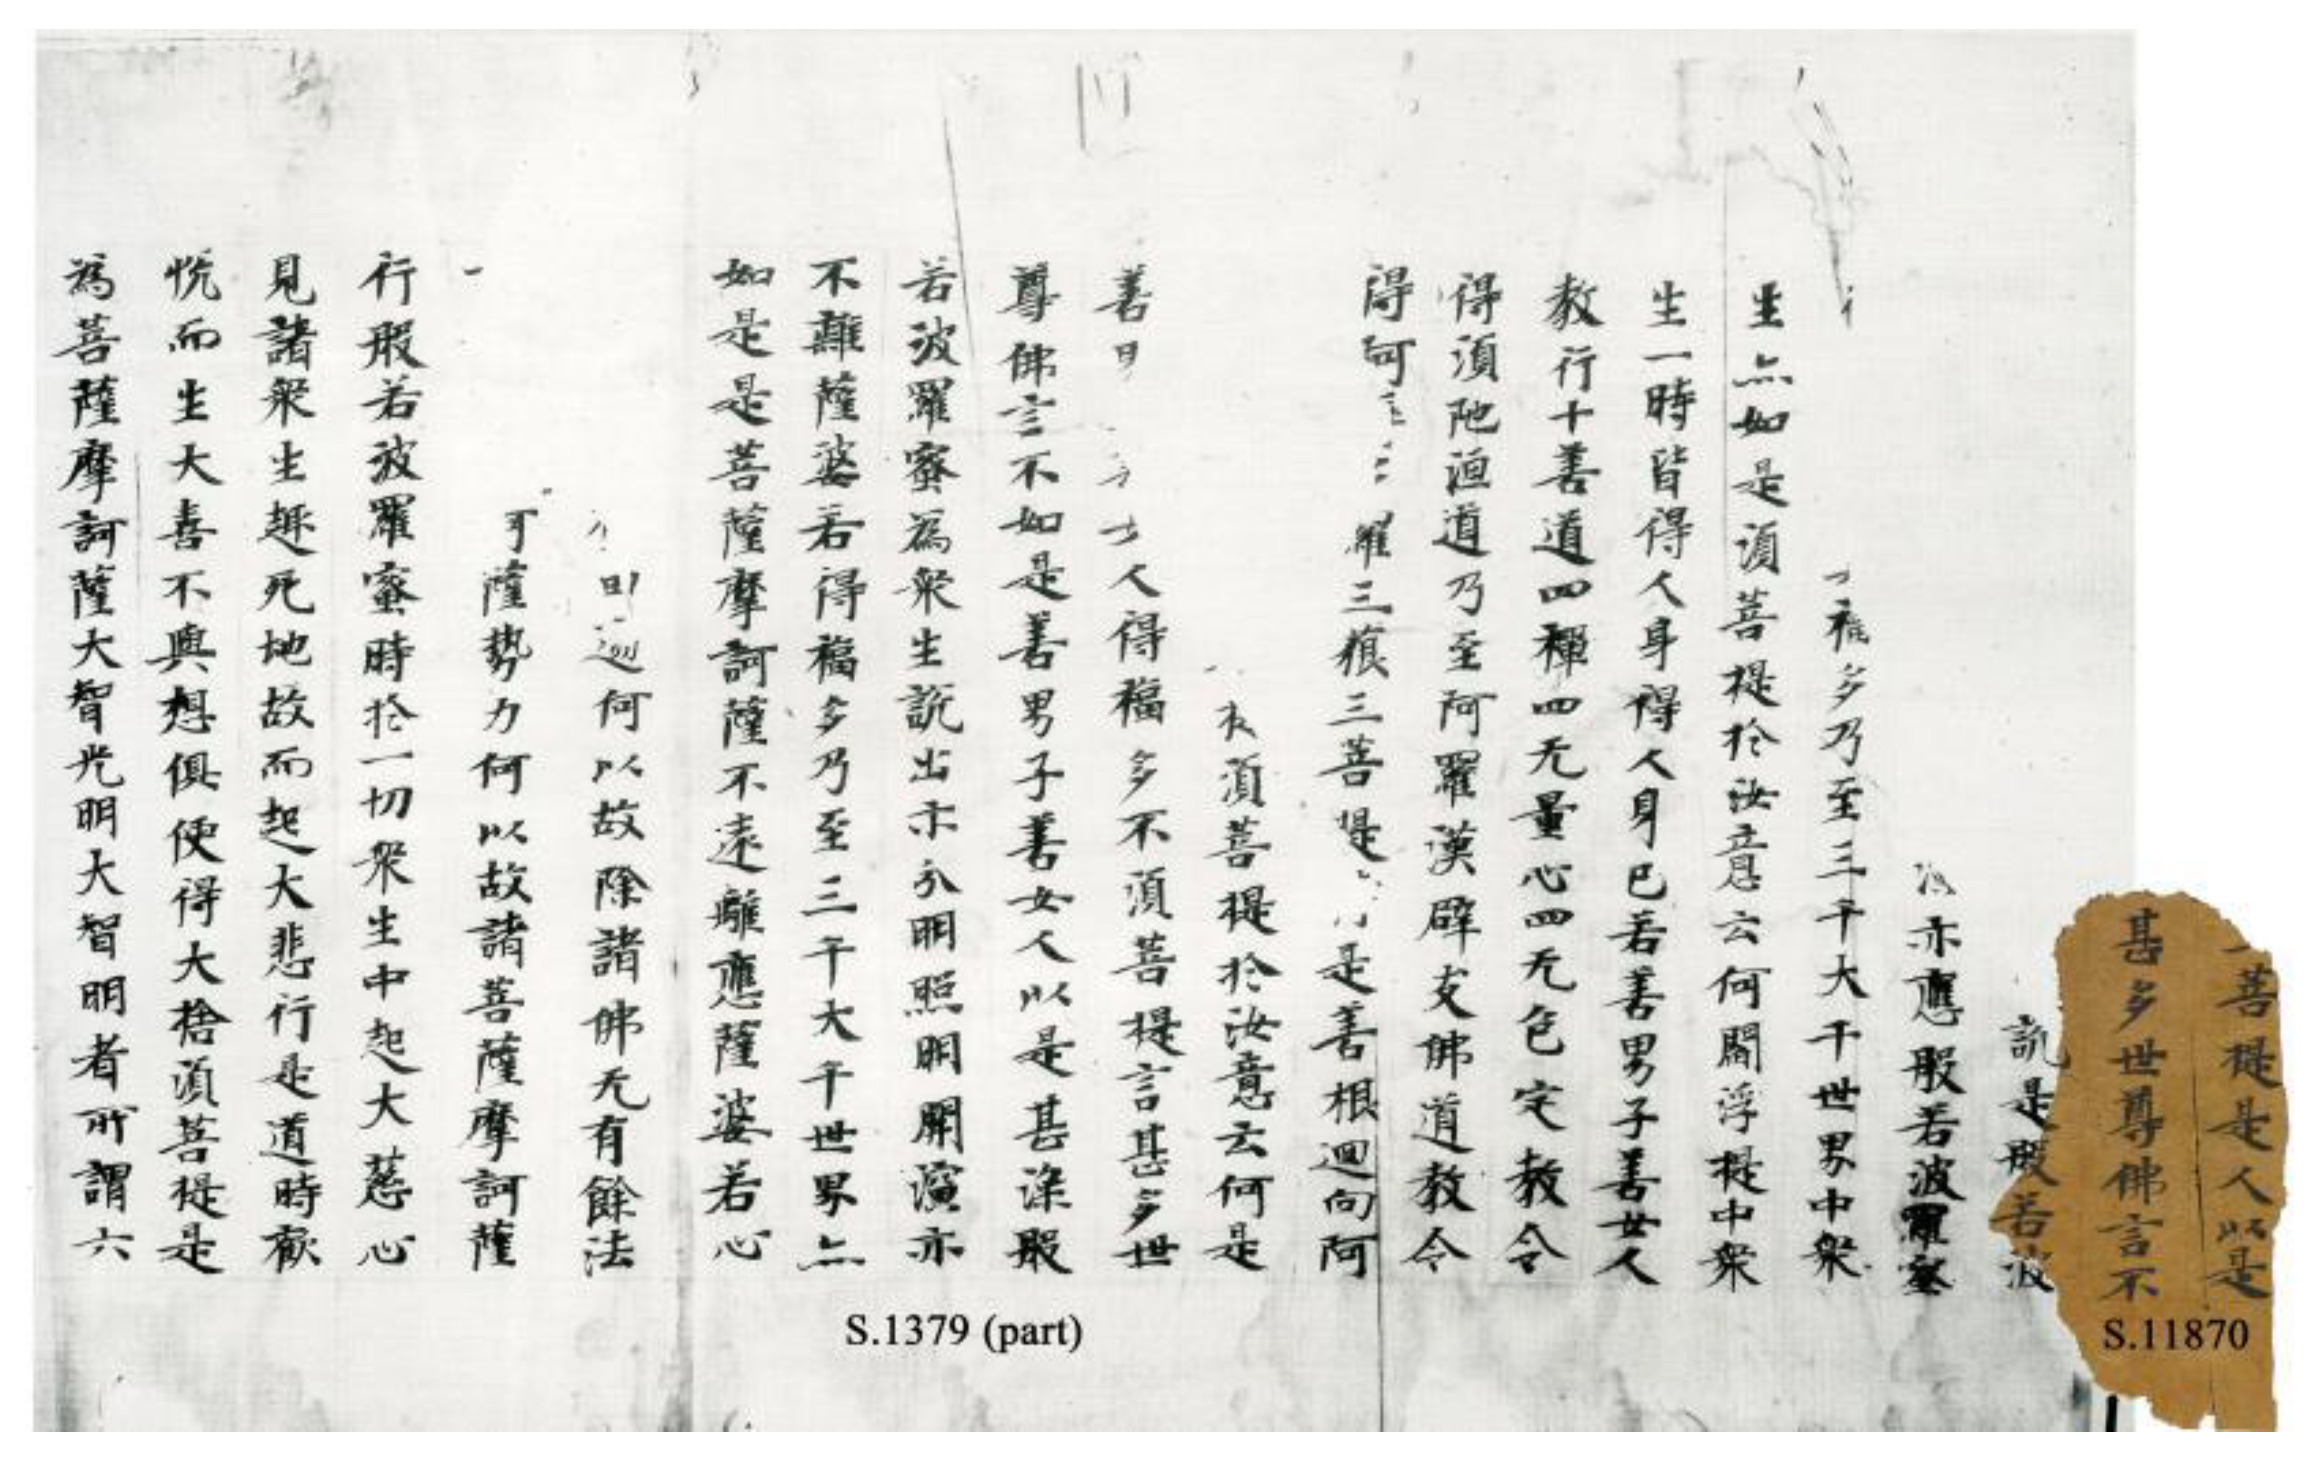 菩提是人以是
甚多世尊佛言不
說是般若波
亦應般若波羅蜜
福多乃至三千大千世界中衆
生亦如是湏菩提扵汝意云何閻浮提中衆
生一時皆得人身得人身已若善男子善女人
教行十善道四禪四无量心四无色定教令
得湏陁洹道乃至阿羅漢辟支佛道教令
得阿羅三藐三菩提是善根迴向阿
湏菩提扵汝意云何是
善人得福多不湏菩提言甚多世
尊佛言不如是善男子善女人以是甚深般
若波羅蜜為衆生說出示分明照明開演亦
不離薩婆若得福多乃至三千大千世界亦
如是是菩薩摩訶薩不遠離應薩婆若心
何以故除諸佛无有餘法
薩勢力何以故諸菩薩摩訶薩
行般若波羅蜜時扵一切衆生中起大慈心
見諸衆生趣死地故而起大悲行是道時歡
悅而生大喜不與想俱便得大捨湏菩提是
為菩薩摩訶薩大智光明大智明者所謂六
S.1379 (part)
S.11870